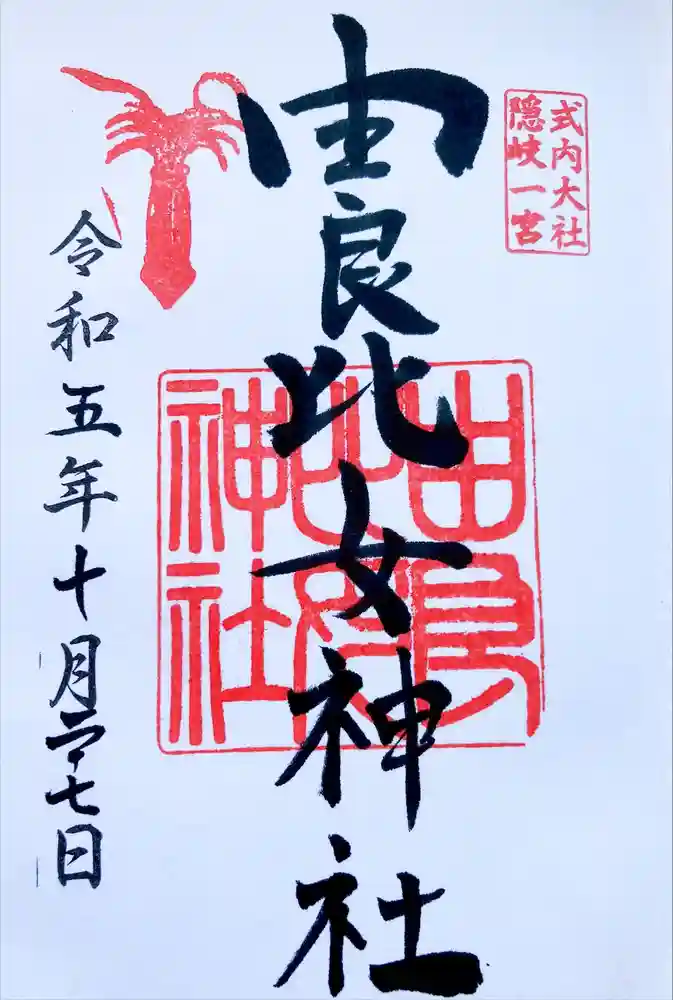 式内大社
隠岐一宮
由良比女神社
由良
比女
神社
令和五年十月二十七日